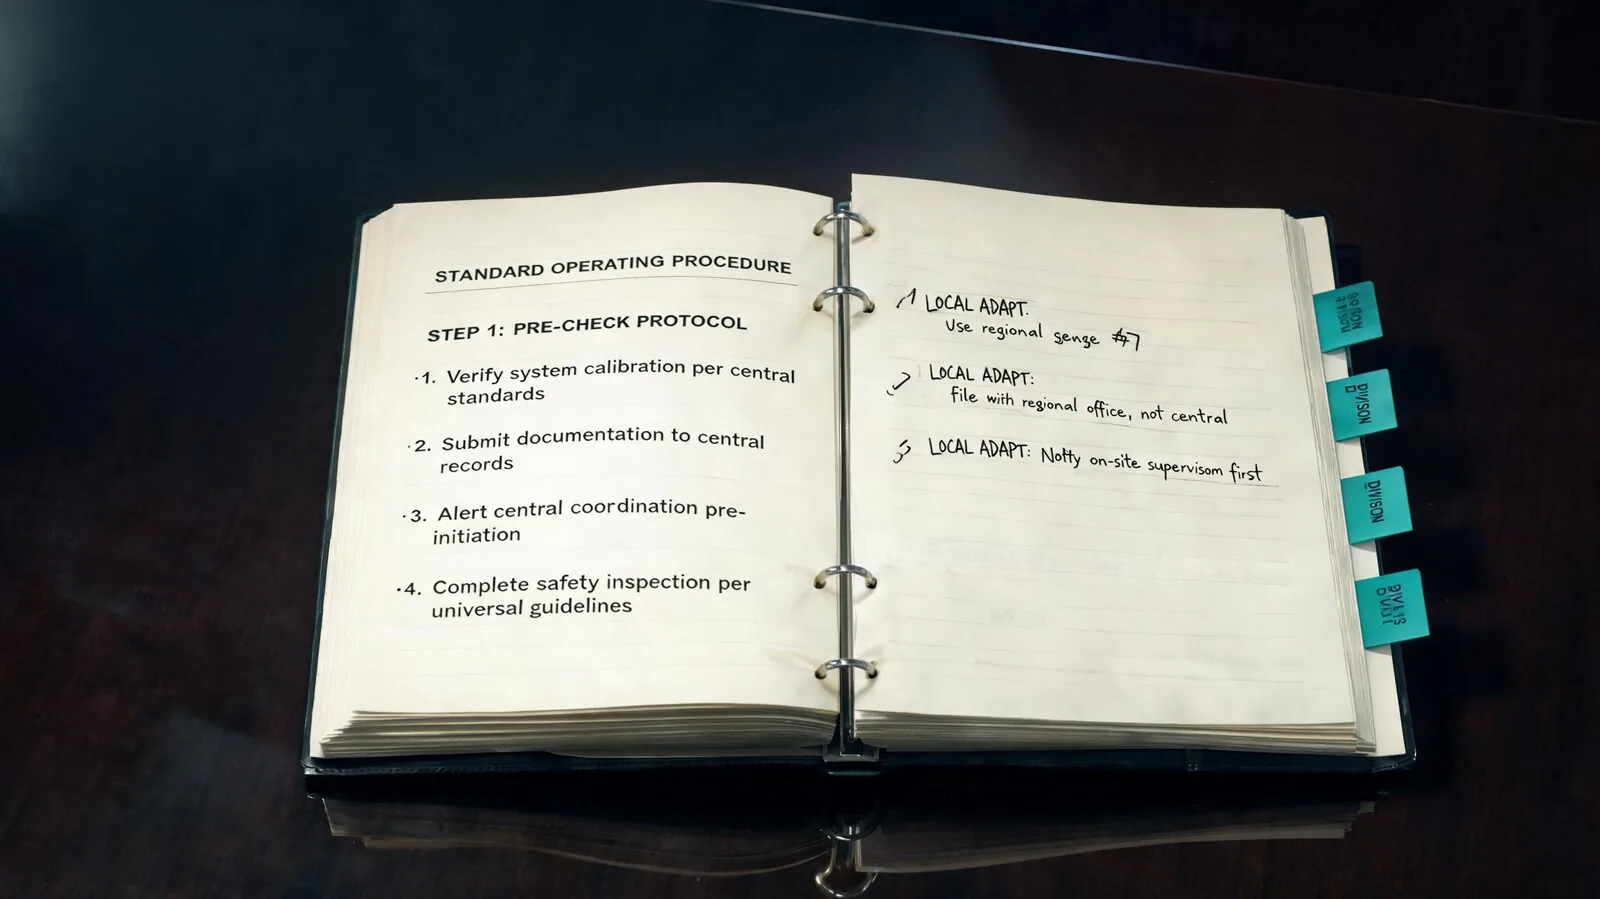 STANDARD OPERATING PROCEDURE
STEP 1: PRE-CHECK PROTOCOL
1. Verify system calibration per central
standards
2. Submit documentation to central
records
3. Alert central coordination pre-
initiation
4. Complete safety inspection per
universal guidelines
1 LOCAL ADAPT.
Use regional genge #7
2 LOCAL ADAPT:
File with regional office, not central
3 LOCAL ADAPT: Notty on-site supervisom first
DIVISON
DIVISON